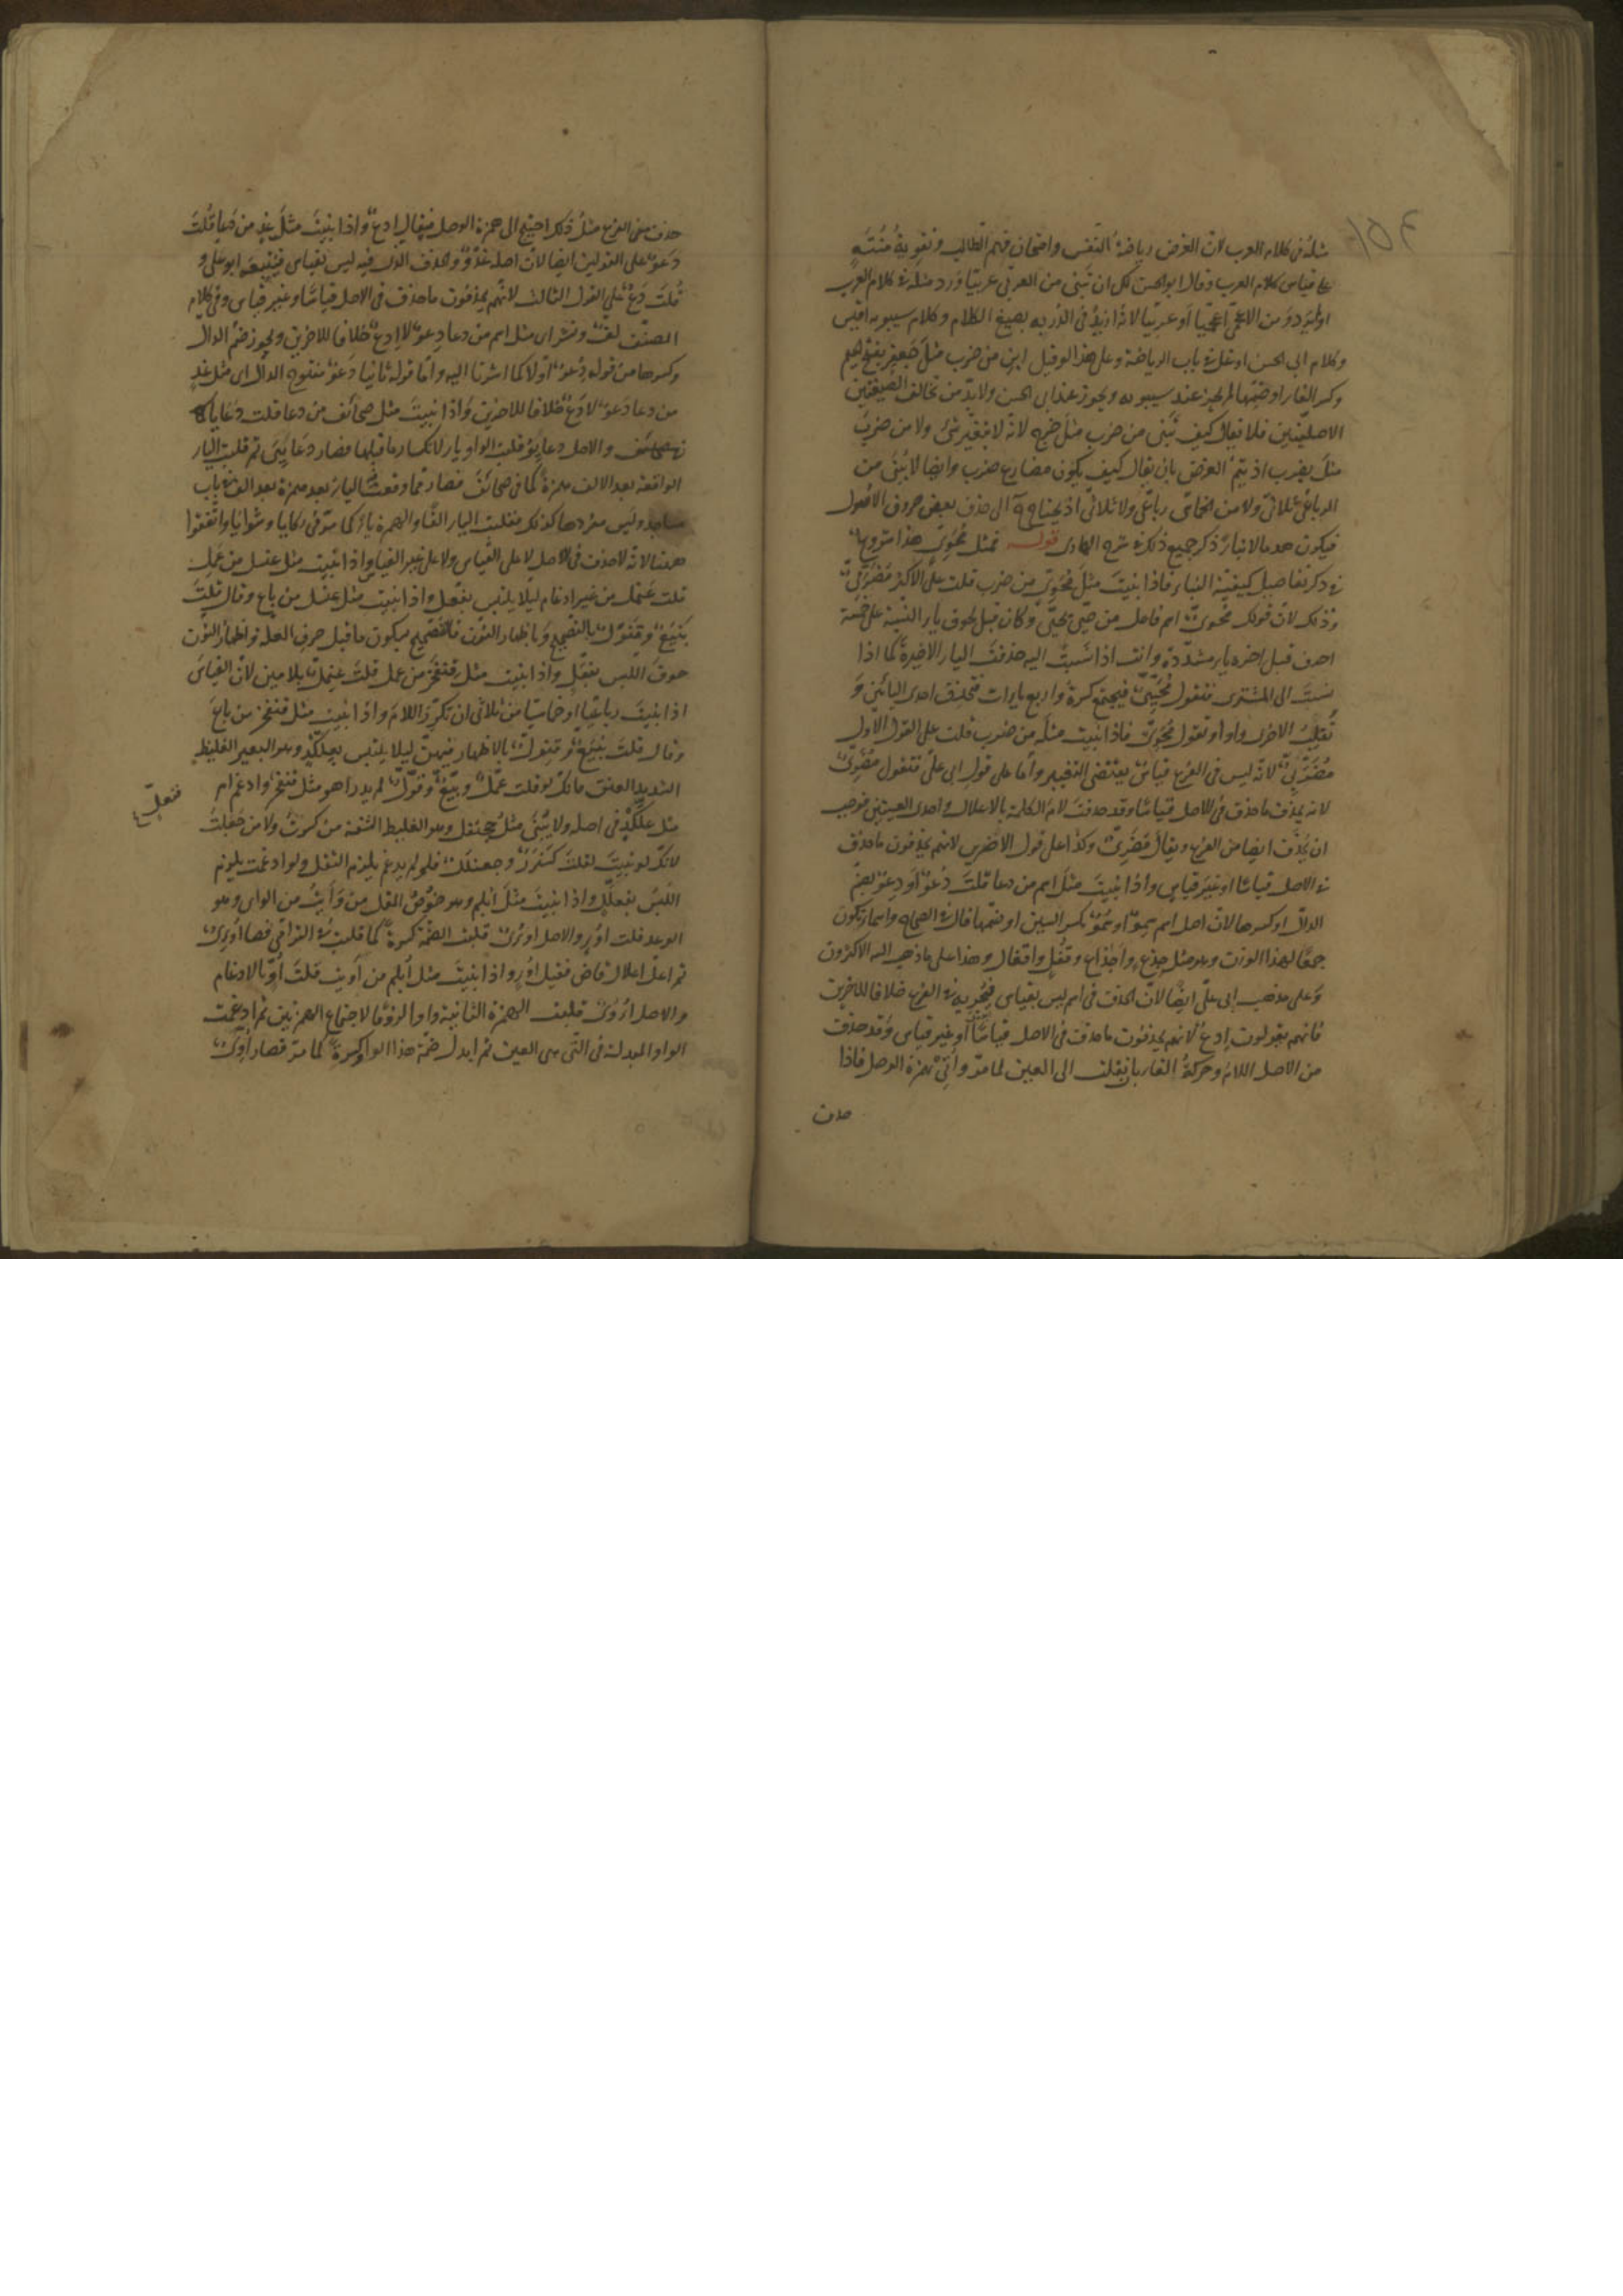 مثله فى كلام العرب لان الغرض رياضة النفس وامتحان فهم الطالب وتقوية منته
على قياس كلام العرب وقال ابو الحسن لك ان تبنى من العربى عربيا ورد مثله فى كلام العرب
او لم يرد ومن الاعجمى اعجميا او عربيا لانه ازيد فى الدربه بصيغ الكلام وكلام سيبويه اقيس
وكلام ابى الحسن ادخل فى باب الرياضة وعلى هذا لو قيل ابن من ضرب مثل جعفر بفتح الجيم
وكسر الفاء او ضمها لم يجز عند سيبويه ويجوز عند ابى الحسن ولابد من تخالف الصيغتين
الاصليتين فلا يقال كيف تبنى من ضرب مثل خرج لانه لا يتغير شئ ولا من ضرب
مثل يضرب اذ يتم الغرض بان يقال كيف يكون مضارع ضرب وايضا لا يبنى من
الرباعى ثلاثى ولا من الخماسى رباعى ولا ثلاثى اذ يحتاج الى حذف بعض حروف الاصول
فيكون هدما لا بناء ذكر جميع ذلك فى شرح الهادى قوله فمثل محوى هذا شروع
فى ذكر تفاصيل كيفية البناء فاذا بنيت مثل محوى من ضرب قلت على الاكثر مضربى
وذلك لان قولك محوى اسم فاعل من حيى يحيى وكان قبل لحوق ياء النسبة على خمسة
احرف قبل اخره ياء مشددة وانت اذا نسبت اليه حذفت الياء الاخيرة كما اذا
نسبت الى المشترى فتقول محيى فيجتمع كسرة واربع ياءات فتحذف احدى اليائين و
تقلب الاخرى واوا وتقول محوى فاذا بنيت مثله من ضرب قلت على القول الاول
مضربى لانه ليس فى الفرع قياس يقتضى التغيير واما على قول ابى على فتقول مضرى
لانه يحذف ما حذف فى الاصل قياسا وقد حذفت لام الكلمة بالاعلال واحدى العينين فوجب
ان يحذف ايضا من الفرع ويقال مضرى وكذا على قول الاخرين لانهم يحذفون ما حذف
فى الاصل قياسا او غير قياس واذا بنيت مثل اسم من دعا قلت دعو او دعو بضم
الدال او كسرها لان اصل اسم سمو او سمو بكسر السين او ضمها قال فى الصحاح واسماء تكون
جمعا لهذا الوزن وهو مثل جذع واجذاع وقفل واقفال وهذا على ما ذهب اليه الاكثرون
وعلى مذهب ابى على ايضا لان الحذف فى اسم ليس بقياس فيجريه فى الفرع خلافا للاخرين
فانهم يقولون ادع لانهم يحذفون ما حذف فى الاصل قياسا او غير قياس وقد حذفت
من الاصل اللام وحركة الفاء بان نقلت الى العين لما مر واتى بهمزة الوصل فاذا
حذف
حذف من الفرع مثل ذلك احتيج الى همزة الوصل فيقال ادع واذا بنيت مثل غد من دعا قلت
دعو على القولين ايضا لان اصله غدو وحذف الواو فيه ليس بقياس فيتبعه ابو على و
قلت دع على القول الثالث لانهم يحذفون ما حذف فى الاصل قياسا او غير قياس وفى كلام
المصنف لف ونشر اى مثل اسم من دعا دعو لا ادع خلافا للاخرين ويجوز ضم الدال
وكسرها من قوله دعو اولا كما اشرنا اليه واما قوله ثانيا دعو مفتوح الدال اى مثل غد
من دعا دعو لا دع خلافا للاخرين واذا بنيت مثل صحائف من دعا قلت دعايا
والاصل دعايو قلبت الواو ياء لانكسار ما قبلها فصار دعايى ثم قلبت الياء
الواقعة بعد الالف همزة كما فى صحائف فصار دعائى وقعت الياء بعد همزة بعد الف فى باب
مساجد وليس مفردها كذلك فقلبت الياء الفا والهمزة ياء كما مر فى ركايا وشوايا واتفقوا
ههنا لانه لا حذف فى الاصل لا على القياس ولا على غير القياس واذا بنيت مثل عنسل من عمل
قلت عنمل من غير ادغام ليلا يلتبس بفعل واذا بنيت مثل عنسل من باع وقال قلت
بنيع وقنول بالتصحيح وباظهار النون فالتصحيح لسكون ما قبل حرف العله واظهار النون
خوف اللبس بفعل واذا بنيت مثل قنفخر من عمل قلت عنمل بلامين لان القياس
اذا بنيت رباعيا او خماسيا من ثلاثى ان تكرر اللام واذا بنيت مثل قنفخر من باع
وقال قلت بنيع وقنول بالاظهار فيهن ليلا يلتبس بعلكد وهو البعير الغليظ
الشديد العنق فانك لو قلت عمل وبيع وقول لم يدر اهو مثل قنفخر وادغم ام
فنعل
مثل علكد فى اصله ولا يبنى مثل جحنفل وهو الغليظ الشفة من كسرت ولا من جعلت
لانك لو بنيت لقلت كسنرر وجعنلل فلو لم يدغم يلزم الثقل ولو ادغمت يلزم
اللبس بفعلل واذا بنيت مثل ابلم وهو خوص المقل من وأيت من الواى وهو
الوعد قلت اوء والاصل اوؤى قلبت الضمة كسرة كما قلبت فى الترامى فصار اوئى
ثم اعل اعلال قاض فقيل اوء واذا بنيت مثل ابلم من اويت قلت او بالادغام
والاصل اؤوى قلبت الهمزة الثانية واوا لزوما لاجتماع الهمزتين ثم ادغمت
الواو المبدلة فى التى هى العين ثم ابدل ضمة هذا الواو كسرة كما مر فصار اوى